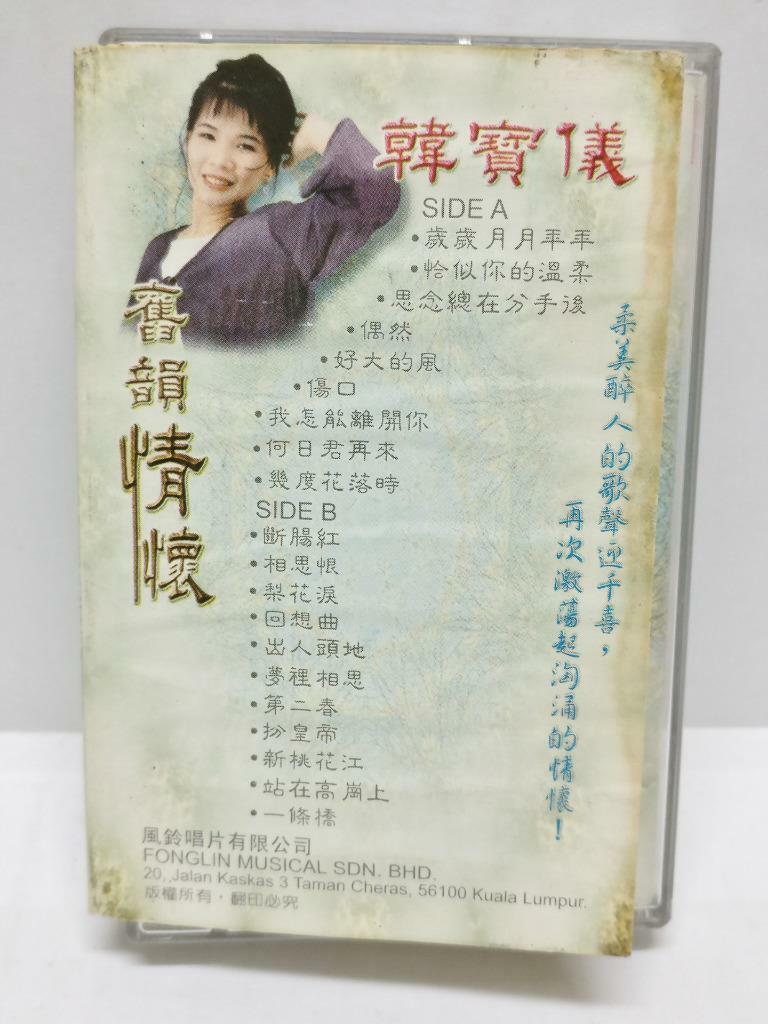 韓寶儀
舊韻情懷
SIDE A
•歲歲月月年年
•恰似你的溫柔
•思念總在分手後
•偶然
•好大的風
•傷口
•我怎能離開你
•何日君再來
•幾度花落時
SIDE B
•斷腸紅
•相思恨
•梨花淚
•回想曲
•出人頭地
•夢裡相思
•第二春
•扮皇帝
•新桃花江
•站在高崗上
•一條橋
柔美醉人的歌聲迎千喜，
再次激蕩起洶涌的情懷！
風鈴唱片有限公司
FONGLIN MUSICAL SDN. BHD.
20, Jalan Kaskas 3 Taman Cheras, 56100 Kuala Lumpur.
版權所有，翻印必究